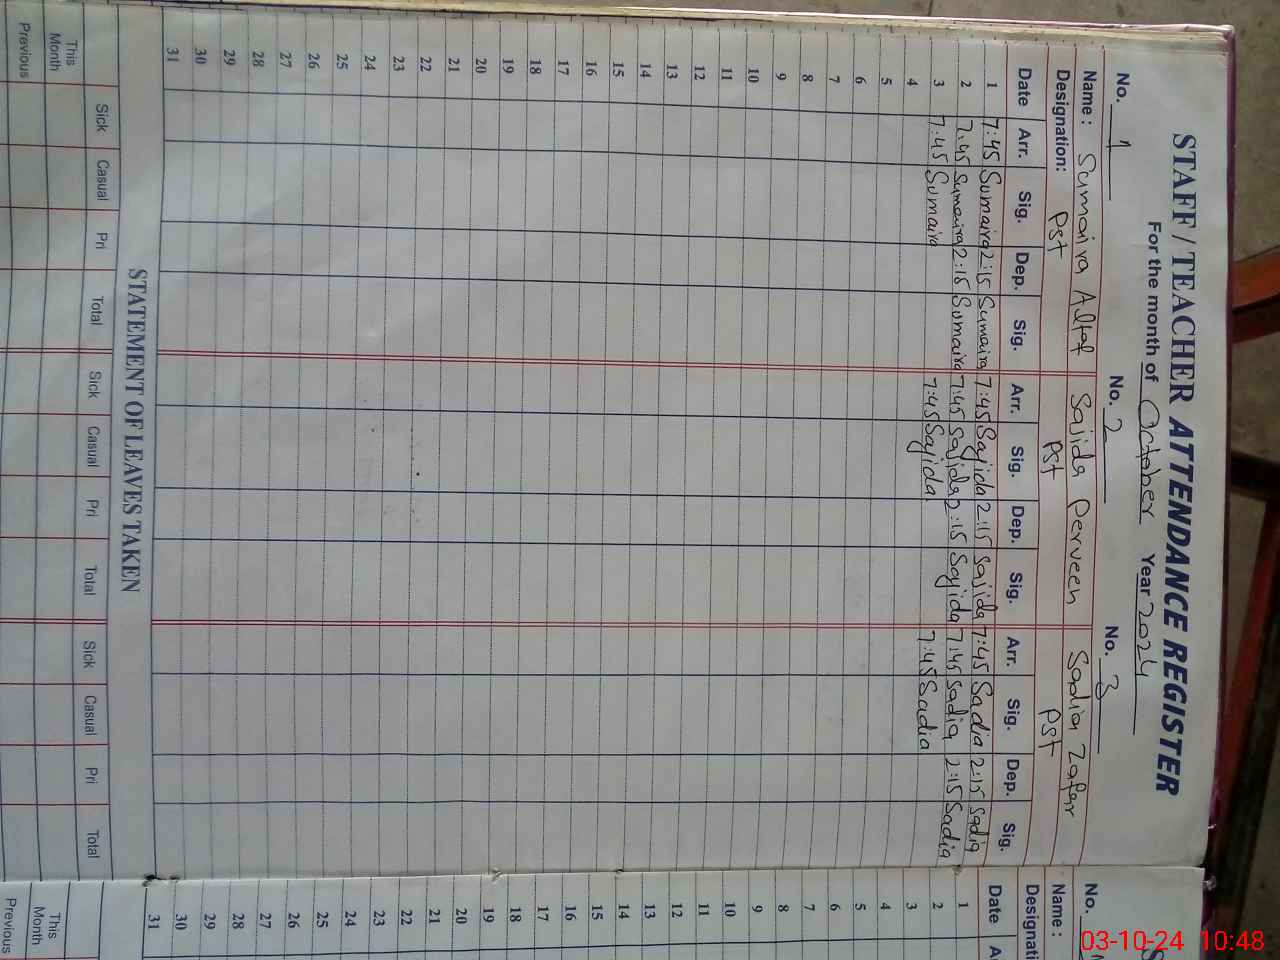 STAFF / TEACHER ATTENDANCE REGISTER
For the month of October Year 2024
No. 1 No. 2 No. 3
Name : Sumaira Altaf Sajida Perveen Sadia Zafar
Designation: PST PST PST
Date Arr. Sig. Dep. Sig. Arr. Sig. Dep. Sig. Arr. Sig. Dep. Sig.
1 7:45 Sumaira 2:15 Sumaira 7:45 Sajida 2:15 Sajida 7:45 Sadia 2:15 Sadia
2 7:45 Sumaira 2:15 Sumaira 7:45 Sajida 2:15 Sajida 7:45 Sadia 2:15 Sadia
3 7:45 Sumaira 7:45 Sajida 7:45 Sadia
4
5
6
7
8
9
10
11
12
13
14
15
16
17
18
19
20
21
22
23
24
25
26
27
28
29
30
31
STATEMENT OF LEAVES TAKEN
Sick Casual Pri Total Sick Casual Pri Total Sick Casual Pri Total
This Month
Previous
No.
Name :
Designati
Date A
1
2
3
4
5
6
7
8
9
10
11
12
13
14
15
16
17
18
19
20
21
22
23
24
25
26
27
28
29
30
31
This Month
Previous
03-10-24 10:48